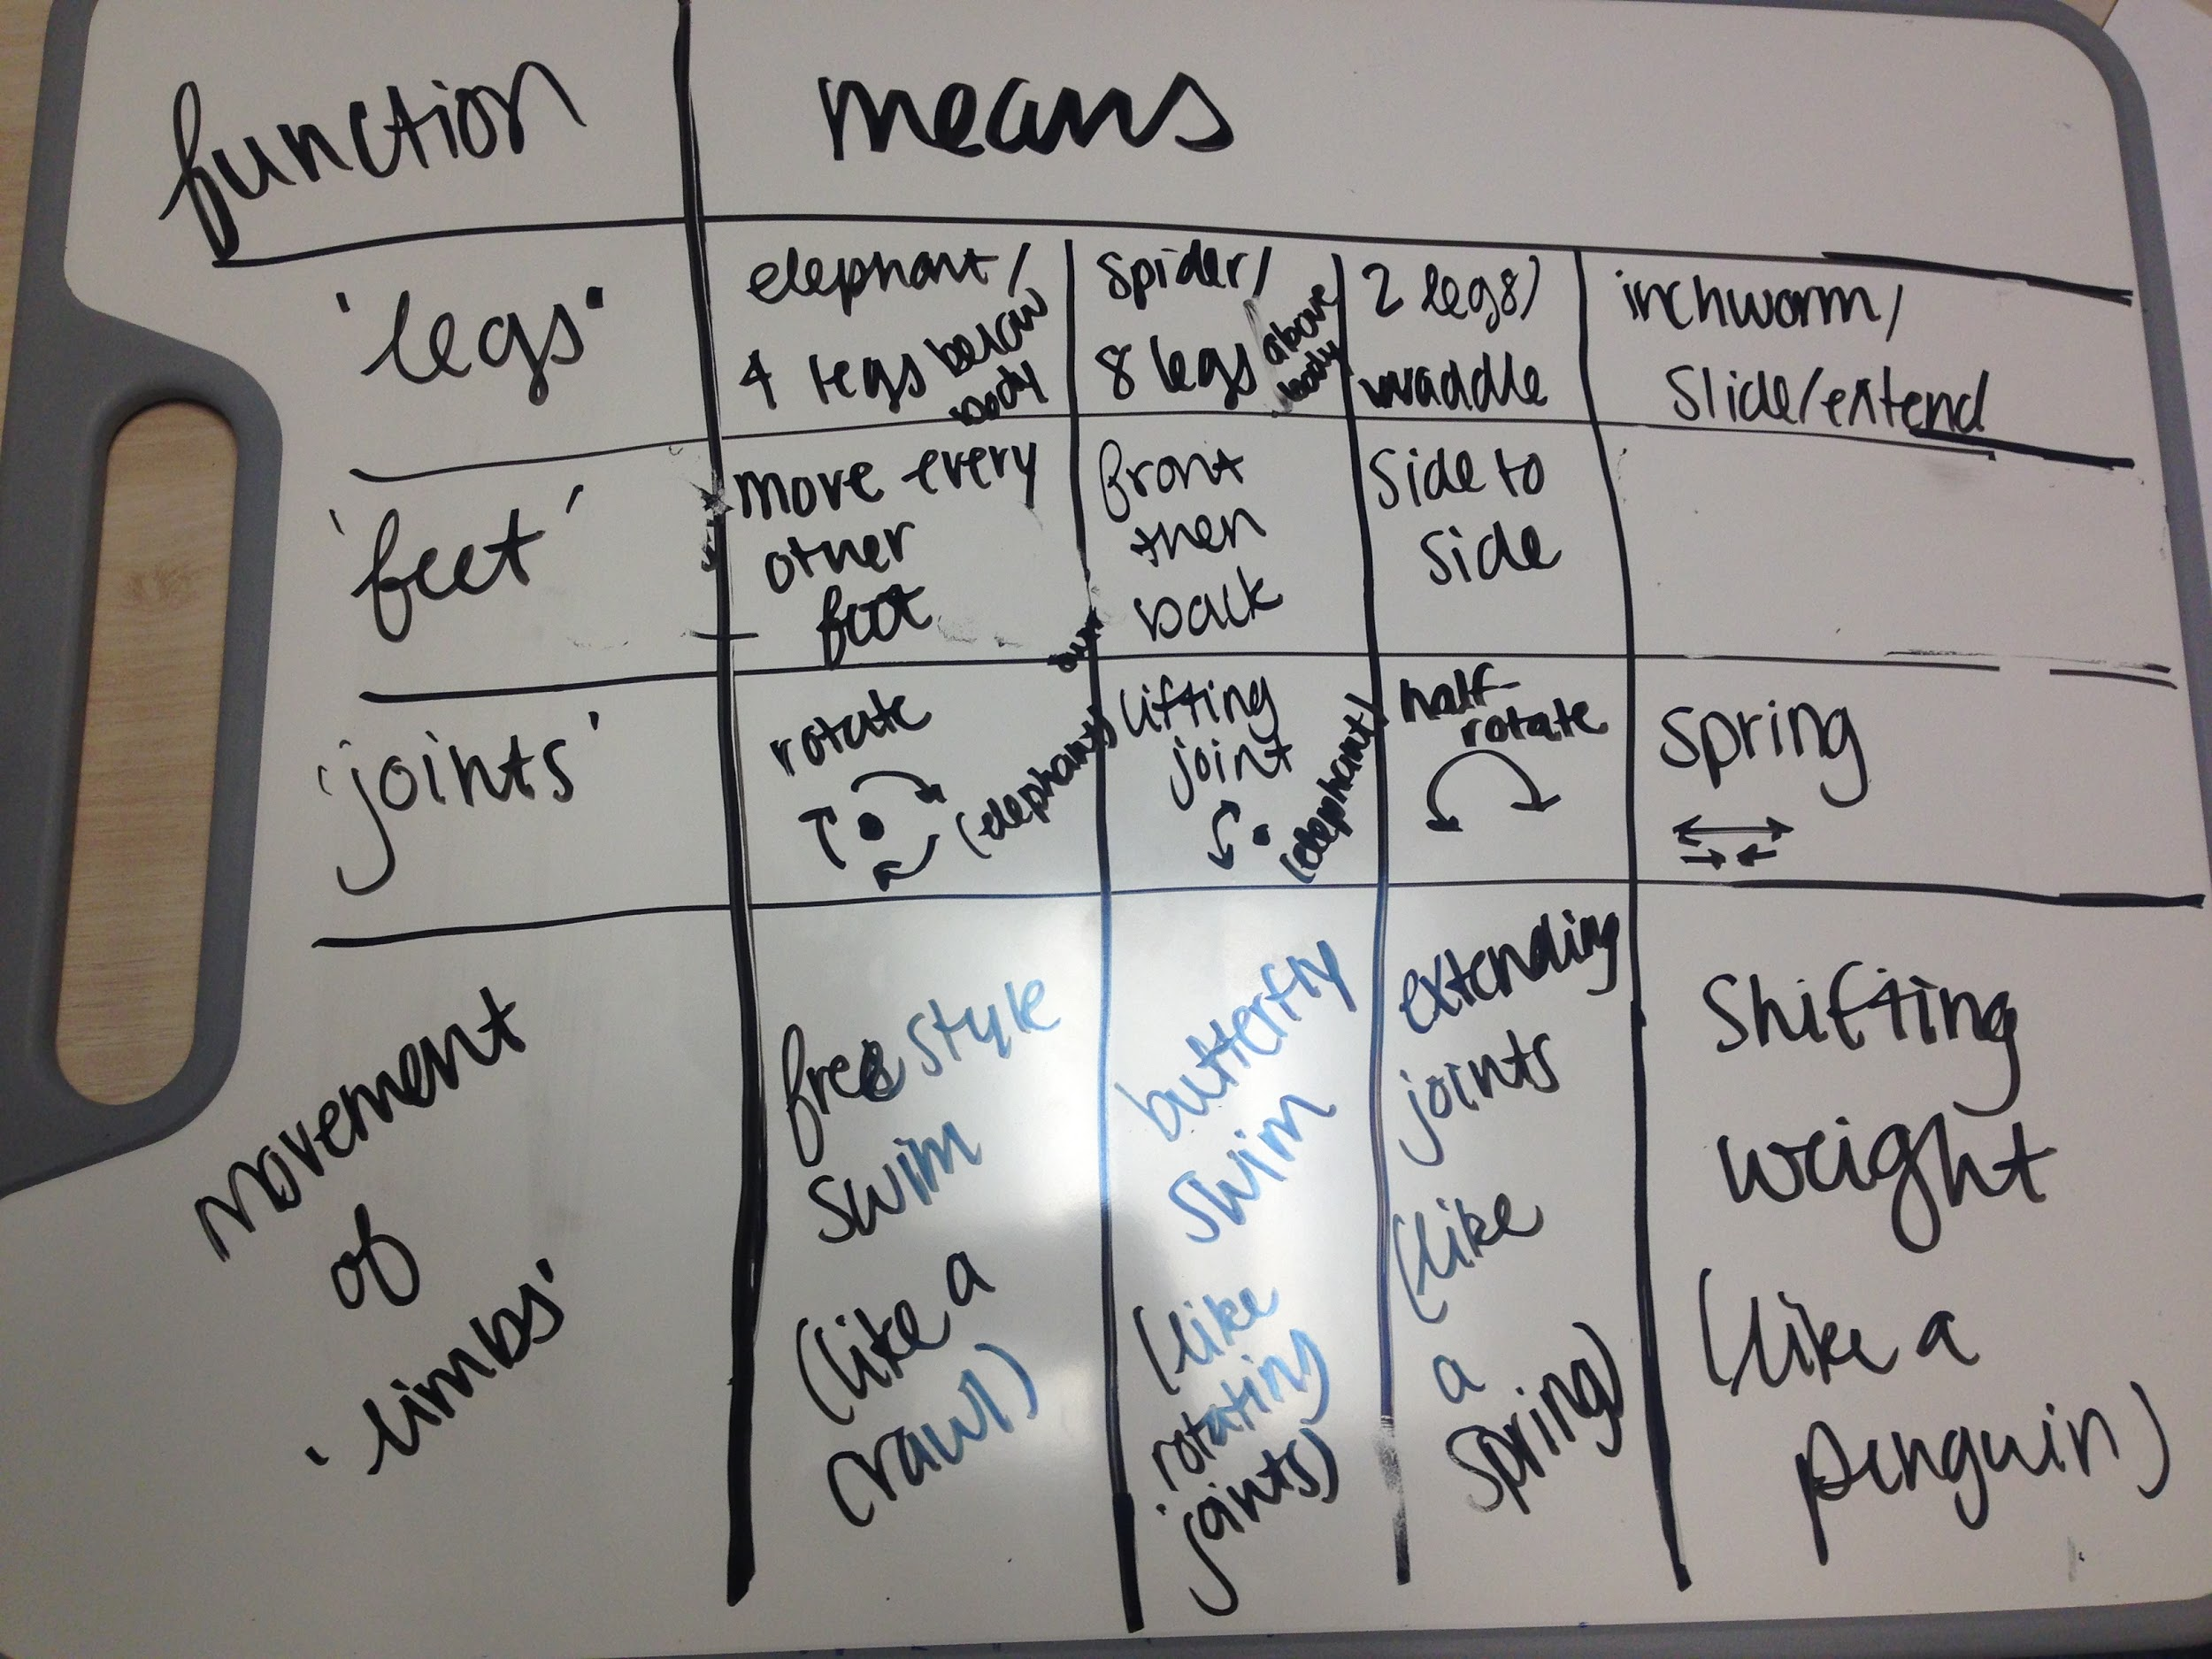 function means
'legs'
elephant/
4 legs below
body
spider/
8 legs above
body
2 legs/
waddle
inchworm/
slide/extend
'feet'
move every
other
foot
front
then
back
side to
side
'joints'
rotate
(elephant)
lifting
joint
(elephant)
half-
rotate
spring
movement
of
'limbs'
freestyle
swim
(like a
crawl)
butterfly
swim
(like
rotating
joints)
extending
joints
(like
a
spring)
Shifting
weight
(like a
penguin)